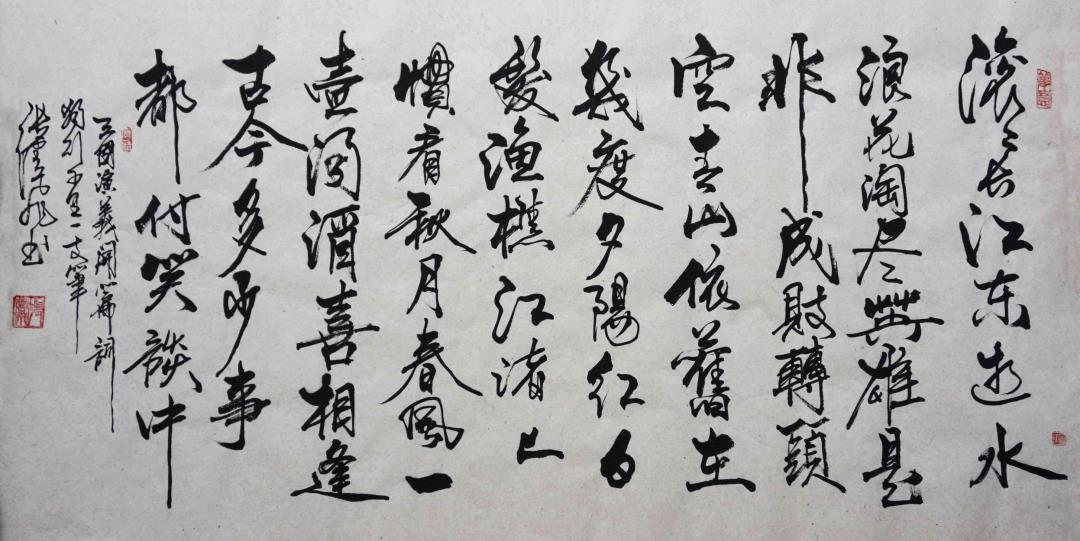 滚滚长江东逝水
浪花淘尽英雄是
非成败转头
空青山依旧在
几度夕阳红白
发渔樵江渚上
惯看秋月春风一
壶浊酒喜相逢
古今多少事
都付笑谈中
三国演义开篇词